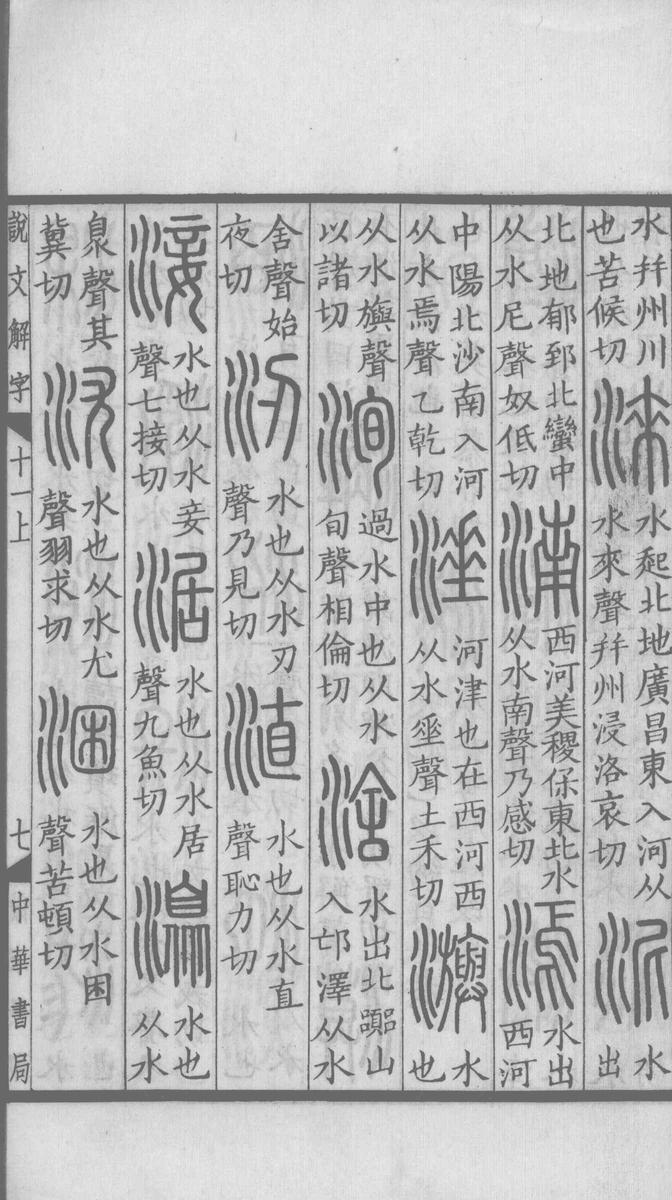 水幷州川
也苦候切
淶
水起北地廣昌東入河从
水來聲幷州浸洛哀切
泥
水
出
北地郁郅北蠻中
从水尼聲奴低切
湳
西河美稷保東北水
从水南聲乃感切
漹
水出
西河
中陽北沙南入河
从水焉聲乙乾切
涶
河津也在西河西
从水𡍮聲土禾切
水
也
从水旟聲
以諸切
洵
過水中也从水
旬聲相倫切
涻
水出北嚻山
入邙澤从水
舍聲始
夜切
㲽
水也从水刃
聲乃見切
淔
水也从水直
聲恥力切
淁
水也从水妾
聲七接切
涺
水也从水居
聲九魚切
水也
从水
臮聲其
冀切
沋
水也从水尤
聲羽求切
涃
水也从水困
聲苦頓切
說文解字
十一上
七
中華書局